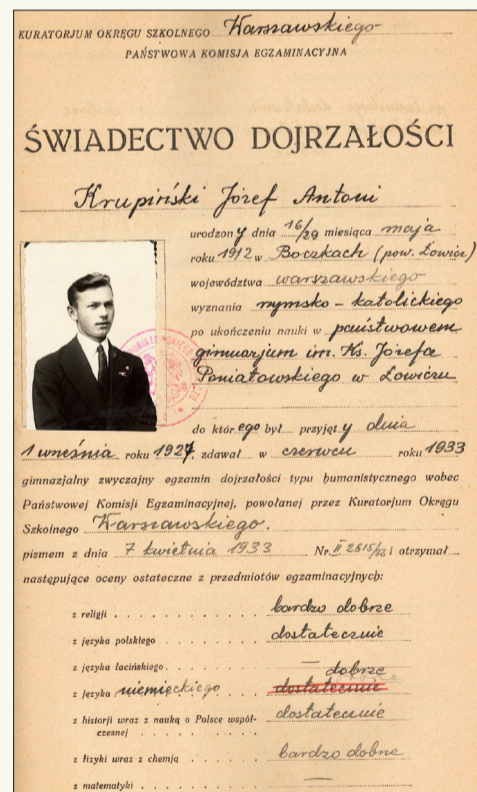 KURATORJUM OKRĘGU SZKOLNEGO Warszawskiego
PAŃSTWOWA KOMISJA EGZAMINACYJNA
ŚWIADECTWO DOJRZAŁOŚCI
Krupiński Józef Antoni
urodzony dnia 16/29 miesiąca maja
roku 1912 w Boczkach (pow. Łowicz)
województwa warszawskiego
wyznania rzymsko-katolickiego
po ukończeniu nauki w państwowem
gimnazjum im. Ks. Józefa
Poniatowskiego w Łowiczu
do którego był przyjęty dnia
1 września roku 1927, zdawał w czerwcu roku 1933
gimnazjalny zwyczajny egzamin dojrzałości typu humanistycznego wobec
Państwowej Komisji Egzaminacyjnej, powołanej przez Kuratorjum Okręgu
Szkolnego Warszawskiego.
pismem z dnia 7 kwietnia 1933 Nr. II 2615/33 i otrzymał
następujące oceny ostateczne z przedmiotów egzaminacyjnych:
z religji . . . . . . . . . bardzo dobrze
z języka polskiego . . . . . . . dostatecznie
z języka łacińskiego . . . . . . . —
dobrze
z języka niemieckiego dostatecznie
z historji wraz z nauką o Polsce współ- dostatecznie
czesnej . . . . . . . .
z fizyki wraz z chemją . . . . . . bardzo dobrze
z matematyki . . . . . . . . —